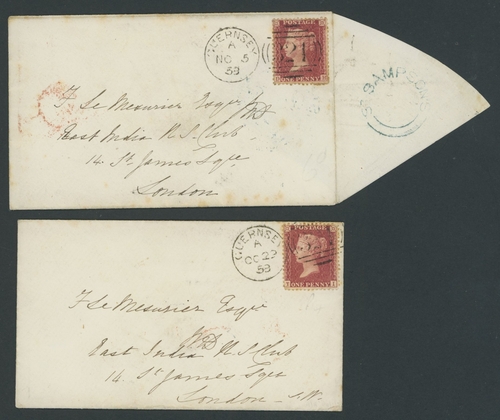 GUERNSEY
A
NO 5
58
POSTAGE
ONE PENNY
ST SAMPSONS
F Le Mesurier Esqre
East India U.S. Club
14. St. James Sqre
London
GUERNSEY
A
OC 29
58
POSTAGE
ONE PENNY
F Le Mesurier Esqre
East India U.S. Club
14 St James Sqre
London S.W.